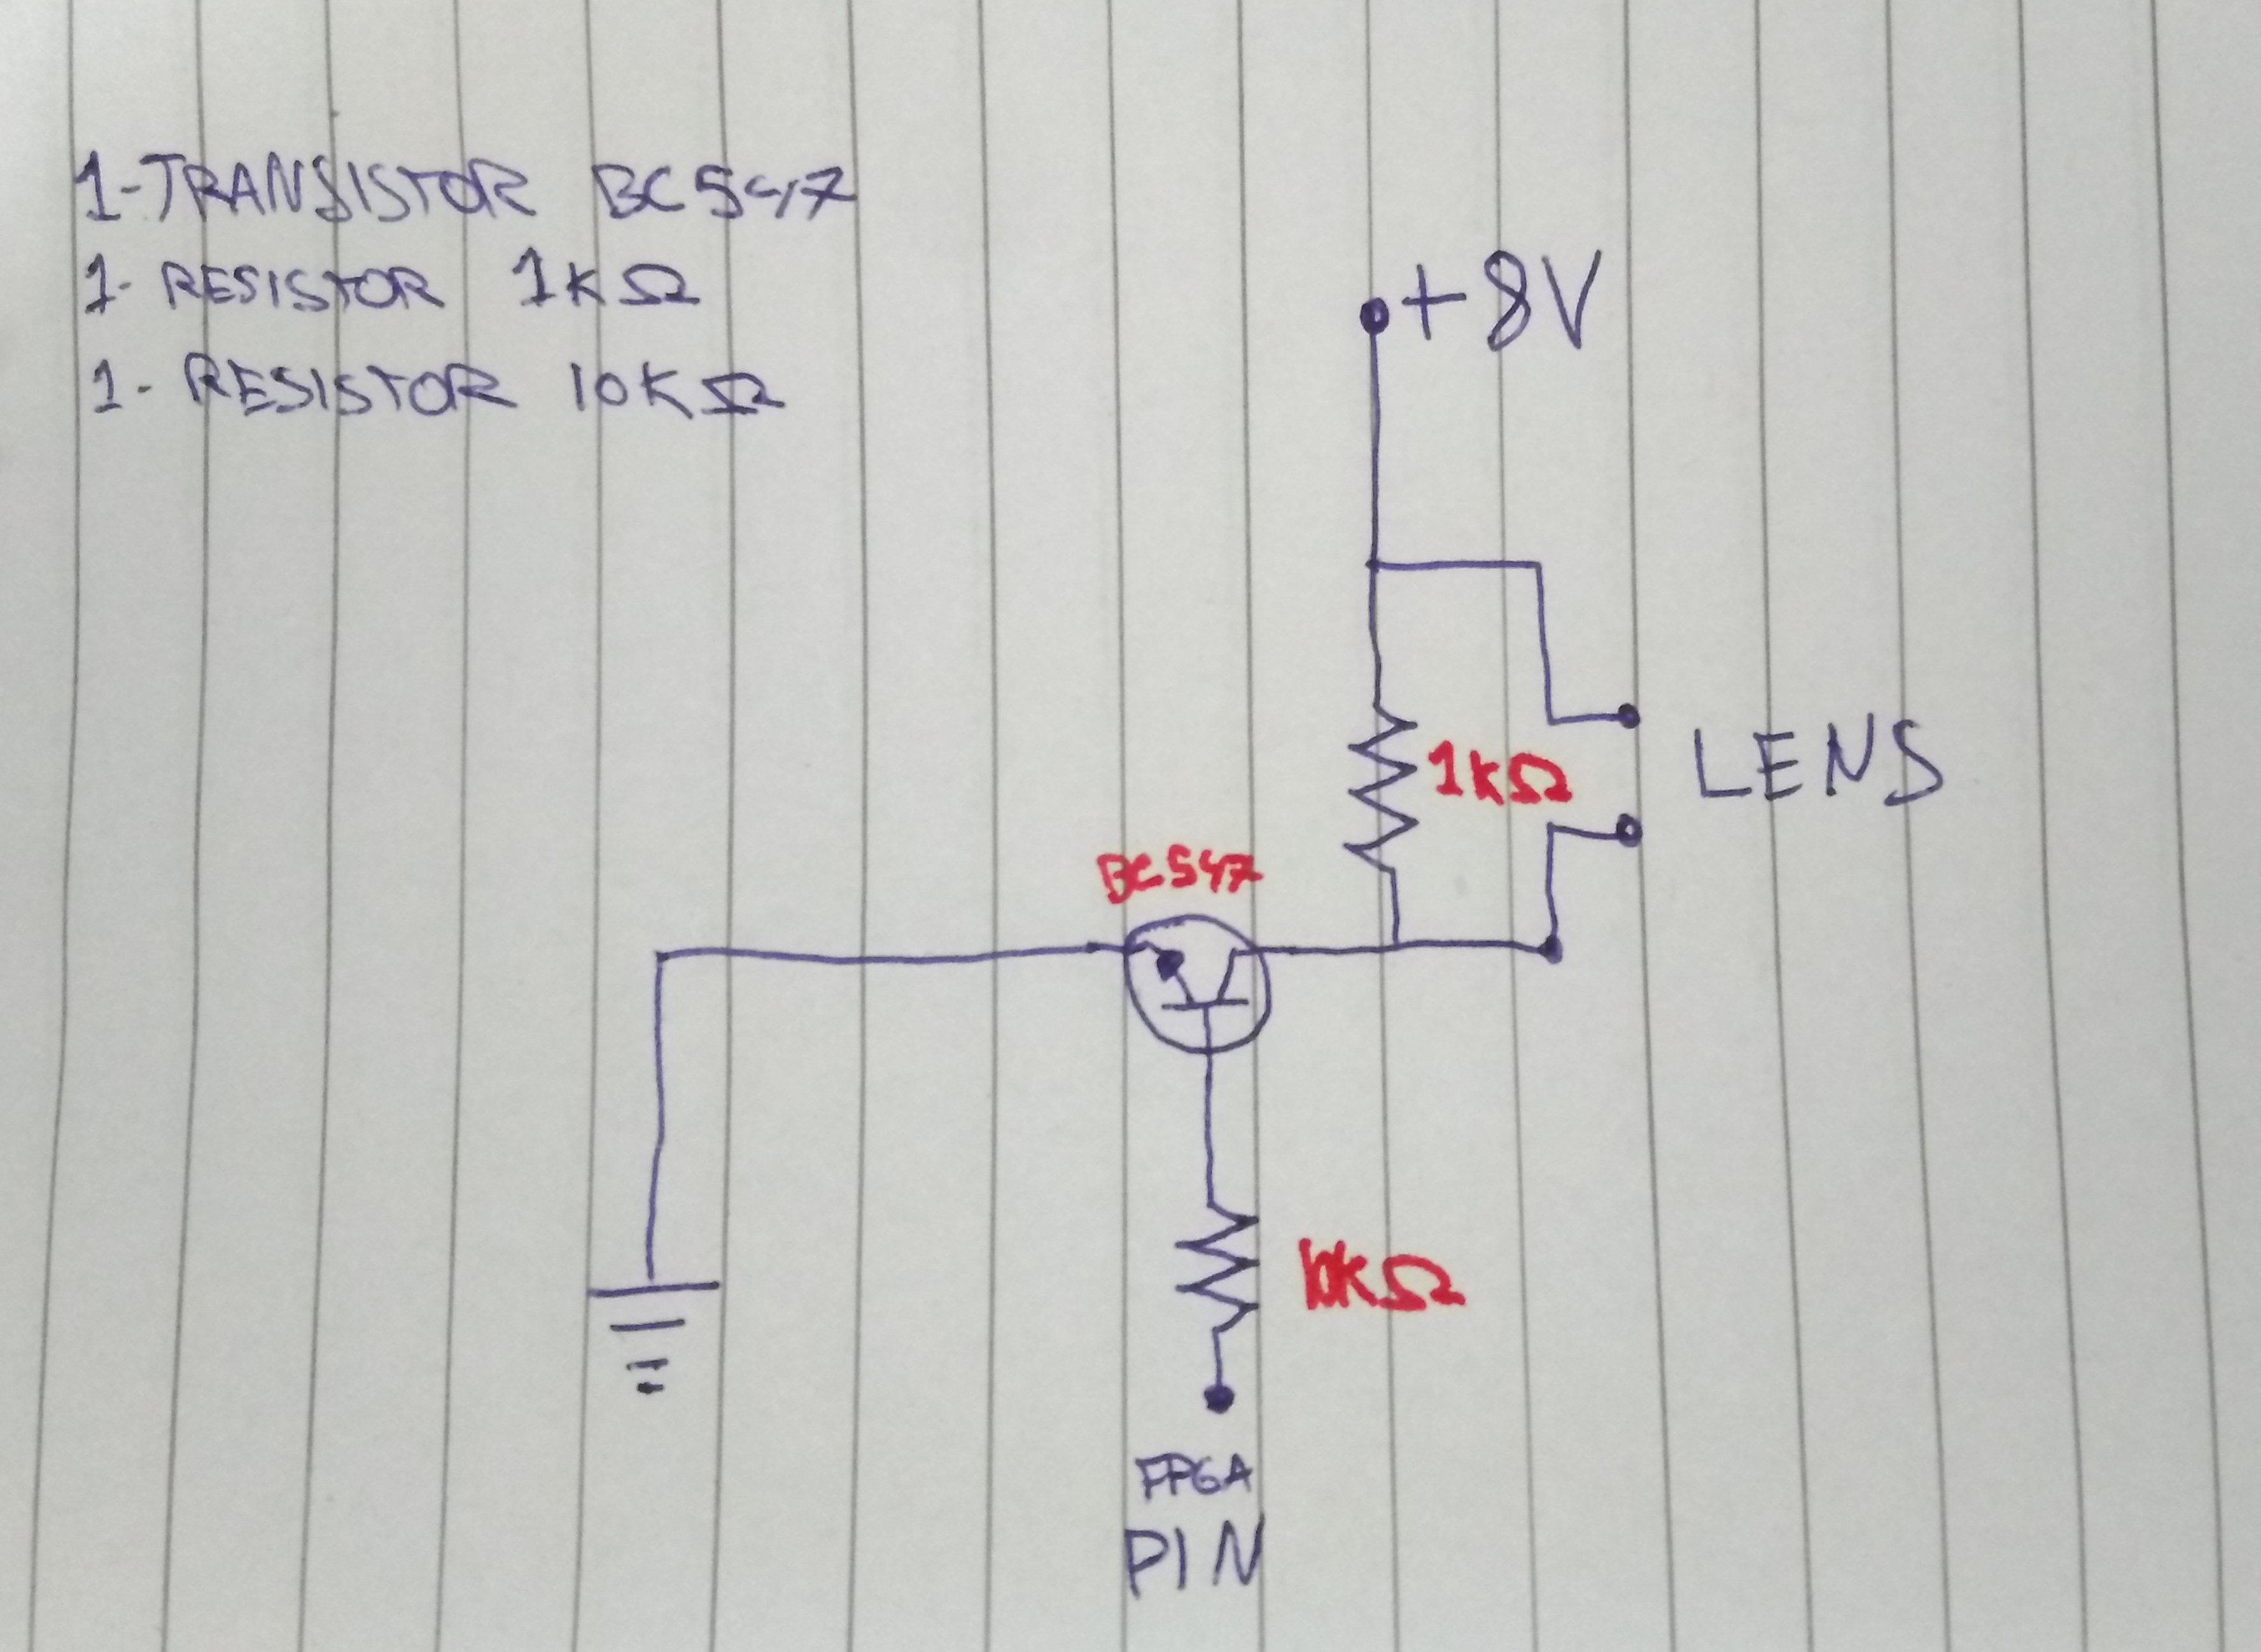 1-TRANSISTOR BC547
1- RESISTOR 1KΩ
1- RESISTOR 10KΩ
+8V
1KΩ
LENS
BC547
10KΩ
FPGA
PIN